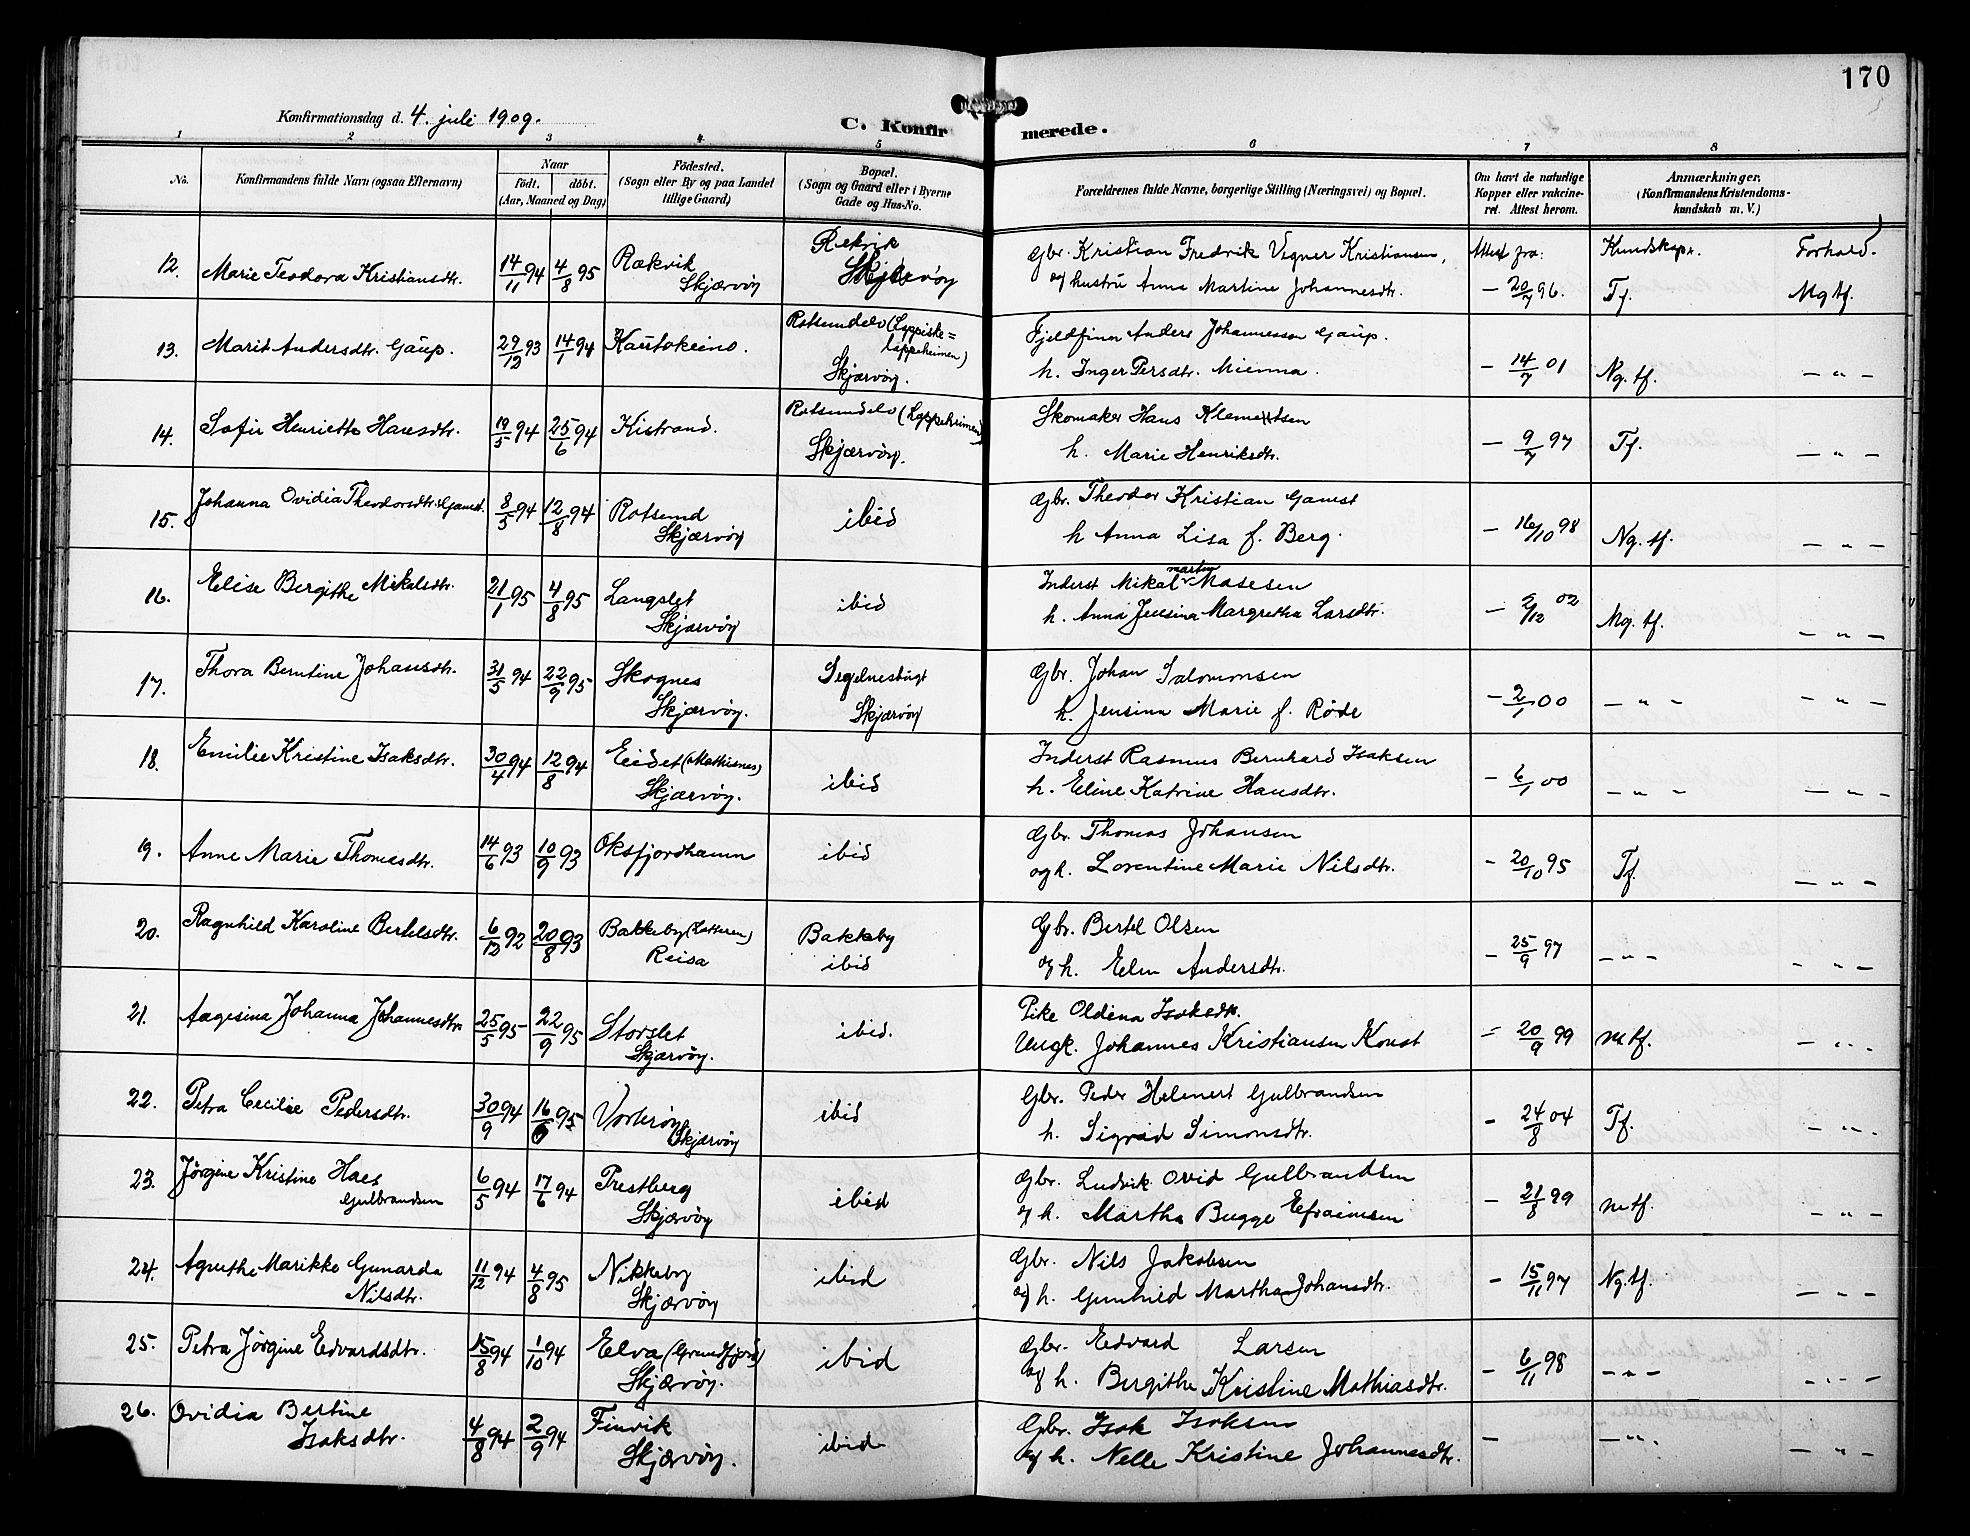 170
Konfirmationsdag d. 4. juli 1909.
C. Konfirmerede.
1 2 3 4 5 6 7 8
No. Konfirmandens fulde Navn (ogsaa Efternavn)
Naar födt. döbt. (Aar, Maaned og Dag)
Födested. (Sogn eller By og paa Landet tillige Gaard)
Bopæl. (Sogn og Gaard eller i Byerne Gade og Hus-No.
Forældrenes fulde Navne, borgerlige Stilling (Næringsvei) og Bopæl.
Om havt de naturlige Kopper eller vakcineret. Attest herom.
Anmærkninger. (Konfirmandens Kristendomskundskab m. V.)
12. Marie Teodora Kristiansdtr. 14/11 94 4/8 95 Rækvik Rekvik Gbr. Kristian Fredrik Vegner Kristiansen, Attest fra: Kundskap. Forhold.
Skjærvöy Skjærvöy og hustru Anna Martine Johannesdtr. — 20/7 96. Tf. Mg tf.
13. Marit Andersdtr. Gaup. 29/12 93 14/1 94 Kautokeino. Rotsundelv (Lyppiske= lappeheimen) Fjeldfinn Anders Johannesson Gaup.
Skjærvöy. h. Inger Persdtr. Mienna. — 14/7 01 Ng. tf. — " —
14. Sofie Henriette Hansdtr. 19/5 94 25/6 94 Kistrand. Rotsundelv (Lappeheimen) Skomaker Hans Klemetsen
Skjærvöy. h. Marie Henriksdtr. — 9/7 97 Tf. — " —
15. Johanna Ovidia Theodorsdtr. Gamst. 8/5 94 12/8 94 Rotsund ibid Gbr. Theodor Kristian Gamst
Skjærvöy h Anna Lisa f. Berg. — 16/10 98 Ng. tf. — " —
16. Elise Bergithe Mikalsdtr. 21/1 95 4/8 95 Langslet ibid Inderst Mikal martin Mosesen
Skjærvöy h. Anna Jensina Margretha Larsdtr. — 2/12 02 Mg. tf. — " —
17. Thora Berntine Johansdtr. 31/5 94 22/9 95 Skognes Segelnesbugt Gbr. Johan Salomonsen
Skjærvöy. Skjærvöy h. Jensina Marie f. Röde — 2/1 00 — " — — " —
18. Emilie Kristine Isaksdtr. 30/4 94 12/8 94 Eidet (Mathisnes) ibid Inderst Rasmus Bernhard Isaksen
Skjærvöy. h. Eline Katrine Hansdtr. — 6/1 00 — " — — " —
19. Anne Marie Thomasdtr. 14/6 93 10/9 93 Oksfjordhamn ibid Gbr Thomas Johansen
og h. Lorentine Marie Nilsdtr. — 20/10 95 Tf. — " —
20. Ragnhild Karoline Bertelsdtr. 6/12 92 20/8 93 Bakkeby Bakkeby Gbr. Bertel Olsen
Reisa ibid og h. Elen Andersdtr. — 25/9 97 — " — — " —
21. Aagesina Johanna Johannesdtr 25/5 95 22/9 95 Storslet ibid. Pike Oldina Isaksdtr.
Skjærvöy. Ungk. Johannes Kristiansen Konst — 20/9 99 mtf. — " —
22. Petra Cecilie Pedersdtr. 30/9 94 16/6 95 Vorteröy ibid Gbr. Peder Helmert Gulbrandsen
Skjærvöy h. Sigrid Simonsdtr. — 24/8 04 Tf. — " —
23. Jörgine Kristine Haes Gulbrandsen 6/5 94 17/6 94 Prestberg ibid Gbr. Ludvik Ovid Gulbrandsen
Skjærvöy og h. Martha Bugge Efraimsen — 21/8 99 mtf. — " —
24. Agnethe Marikke Gunarda Nilsdtr. 11/12 94 4/8 95 Nikkeby ibid Gbr. Nils Jakobsen
Skjærvöy og h. Gunhild Martha Johansdtr. — 15/11 97 Ng. tf. — " —
25. Petra Jörgine Edvardsdtr. 15/8 94 1/10 94 Elva (Grundfjord) ibid Gbr. Edvard Larsen
Skjærvöy. og h. Bergithe Kristine Mathiasdtr. — 6/11 98 — " — — " —
26. Ovidia Bertine Isaksdtr. 4/8 94 2/9 94 Finvik ibid Gbr. Isak Isaksen
Skjærvöy. og h. Nelle Kristine Johannesdtr. — — " — — " —